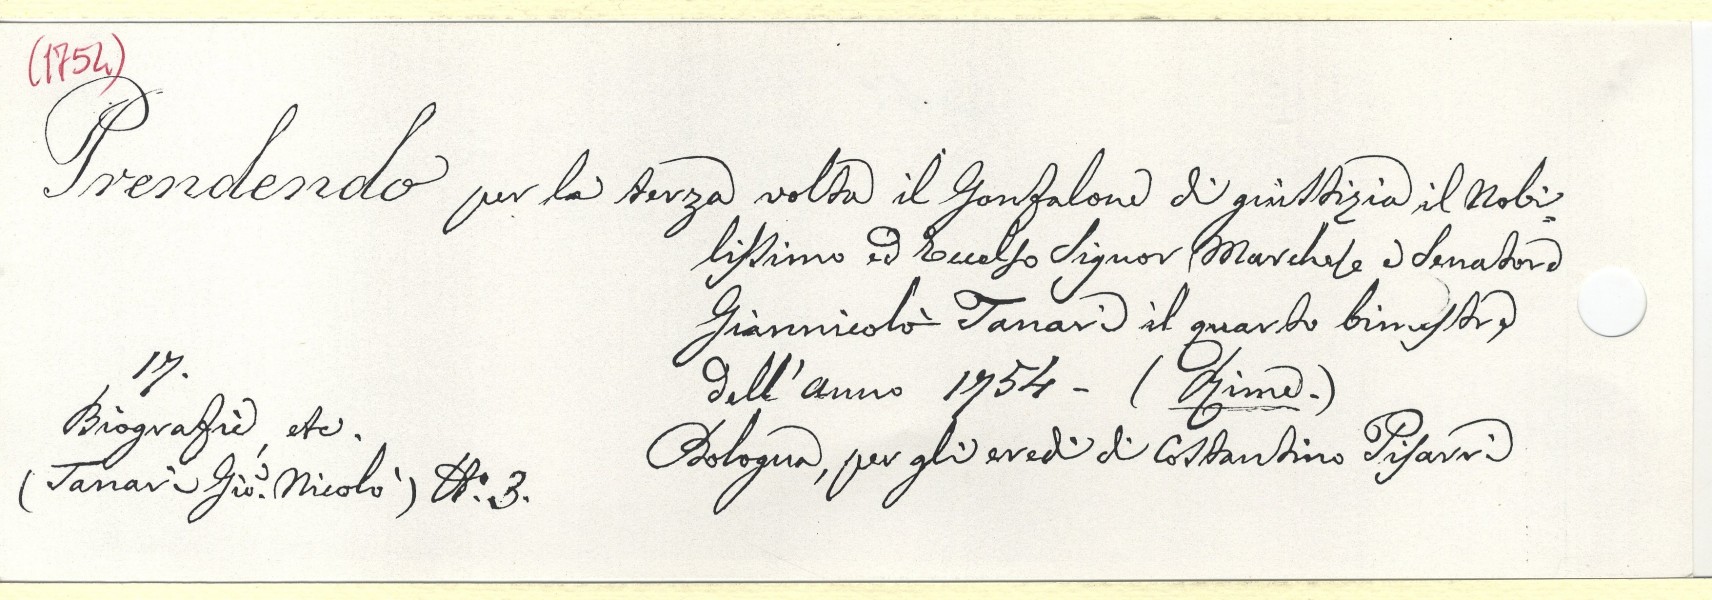 (1754)
Prendendo per la terza volta il Gonfalone di giustizia il Nobi=
lissimo ed Eccelso Signor Marchese e Senatore
Giannicolò Tanari il quarto bimestre
dell'anno 1754 - (Rime.)
Bologna, per gli eredi di Costantino Pisarri
17.
Biografie, etc.
(Tanari Gio. Nicolò) N.º 3.